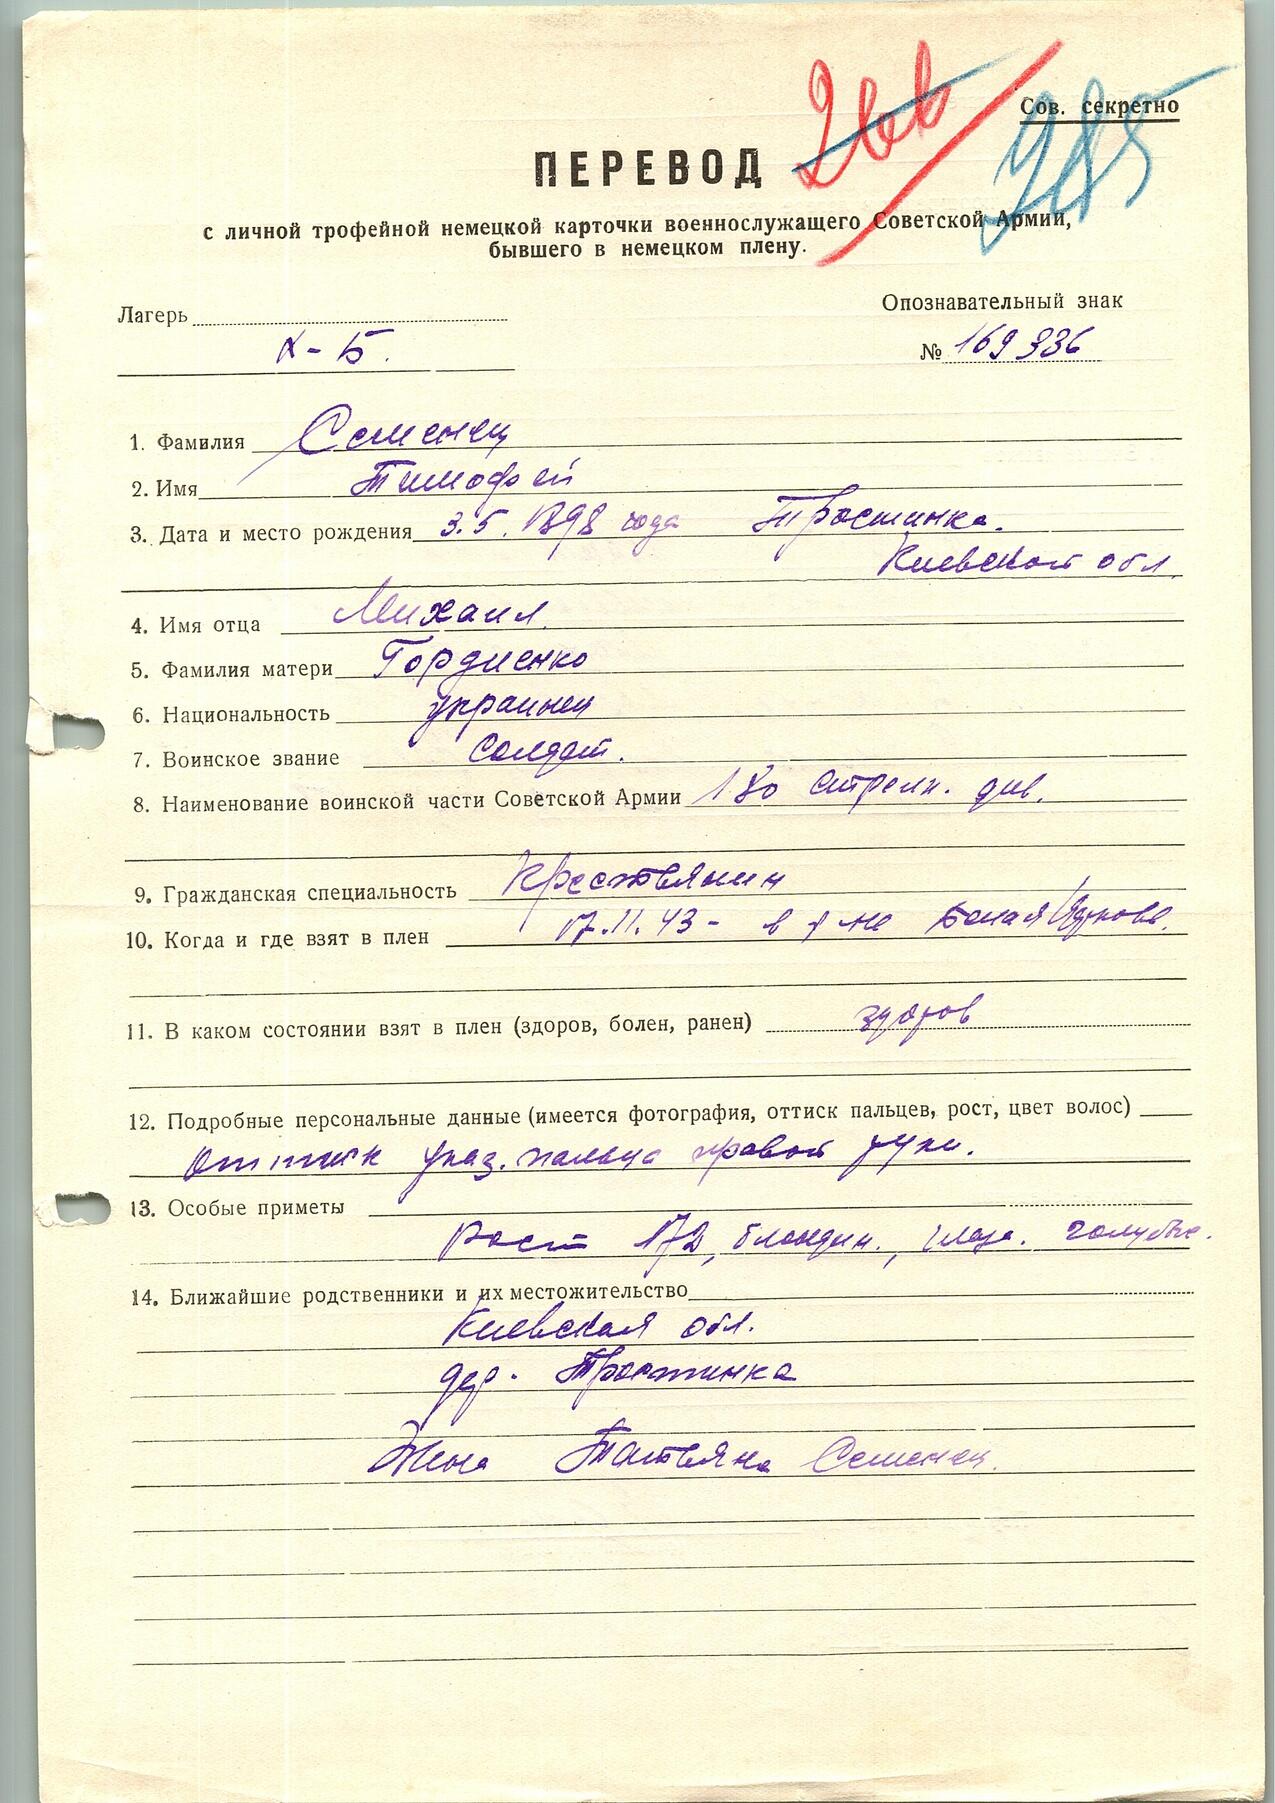 Сов. секретно
ПЕРЕВОД
с личной трофейной немецкой карточки военнослужащего Советской Армии,
бывшего в немецком плену.
Лагерь
Опознавательный знак
X-Б.
№ 169336
1. Фамилия Семенец
2. Имя Тимофей
3. Дата и место рождения 3.5.1898 года Тростинка.
Киевской обл.
4. Имя отца Михаил.
5. Фамилия матери Гордиенко
6. Национальность украинец
7. Воинское звание солдат.
8. Наименование воинской части Советской Армии 180 стрелк. див.
9. Гражданская специальность Крестьянин
10. Когда и где взят в плен 17.11.43 - в р-не Белая
11. В каком состоянии взят в плен (здоров, болен, ранен) здоров
12. Подробные персональные данные (имеется фотография, оттиск пальцев, рост, цвет волос)
Оттиск указ. пальца правой руки.
13. Особые приметы
Рост 172, блондин., глаза. голубые.
14. Ближайшие родственники и их местожительство
Киевская обл.
дер. Тростинка
Жена Татьяна Семенец.